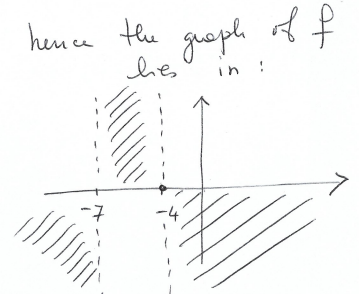 hence the graph of f
lies in :
-7 -4